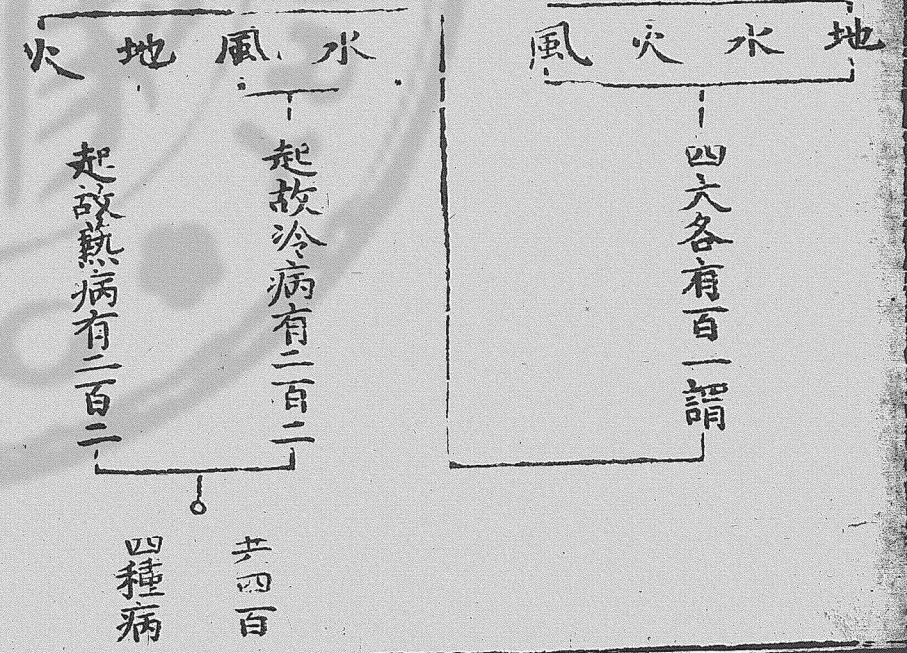 地水火風
四大各有百一謂
水風地火
起故冷病有二百二
起故熱病有二百二
共四百
四種病